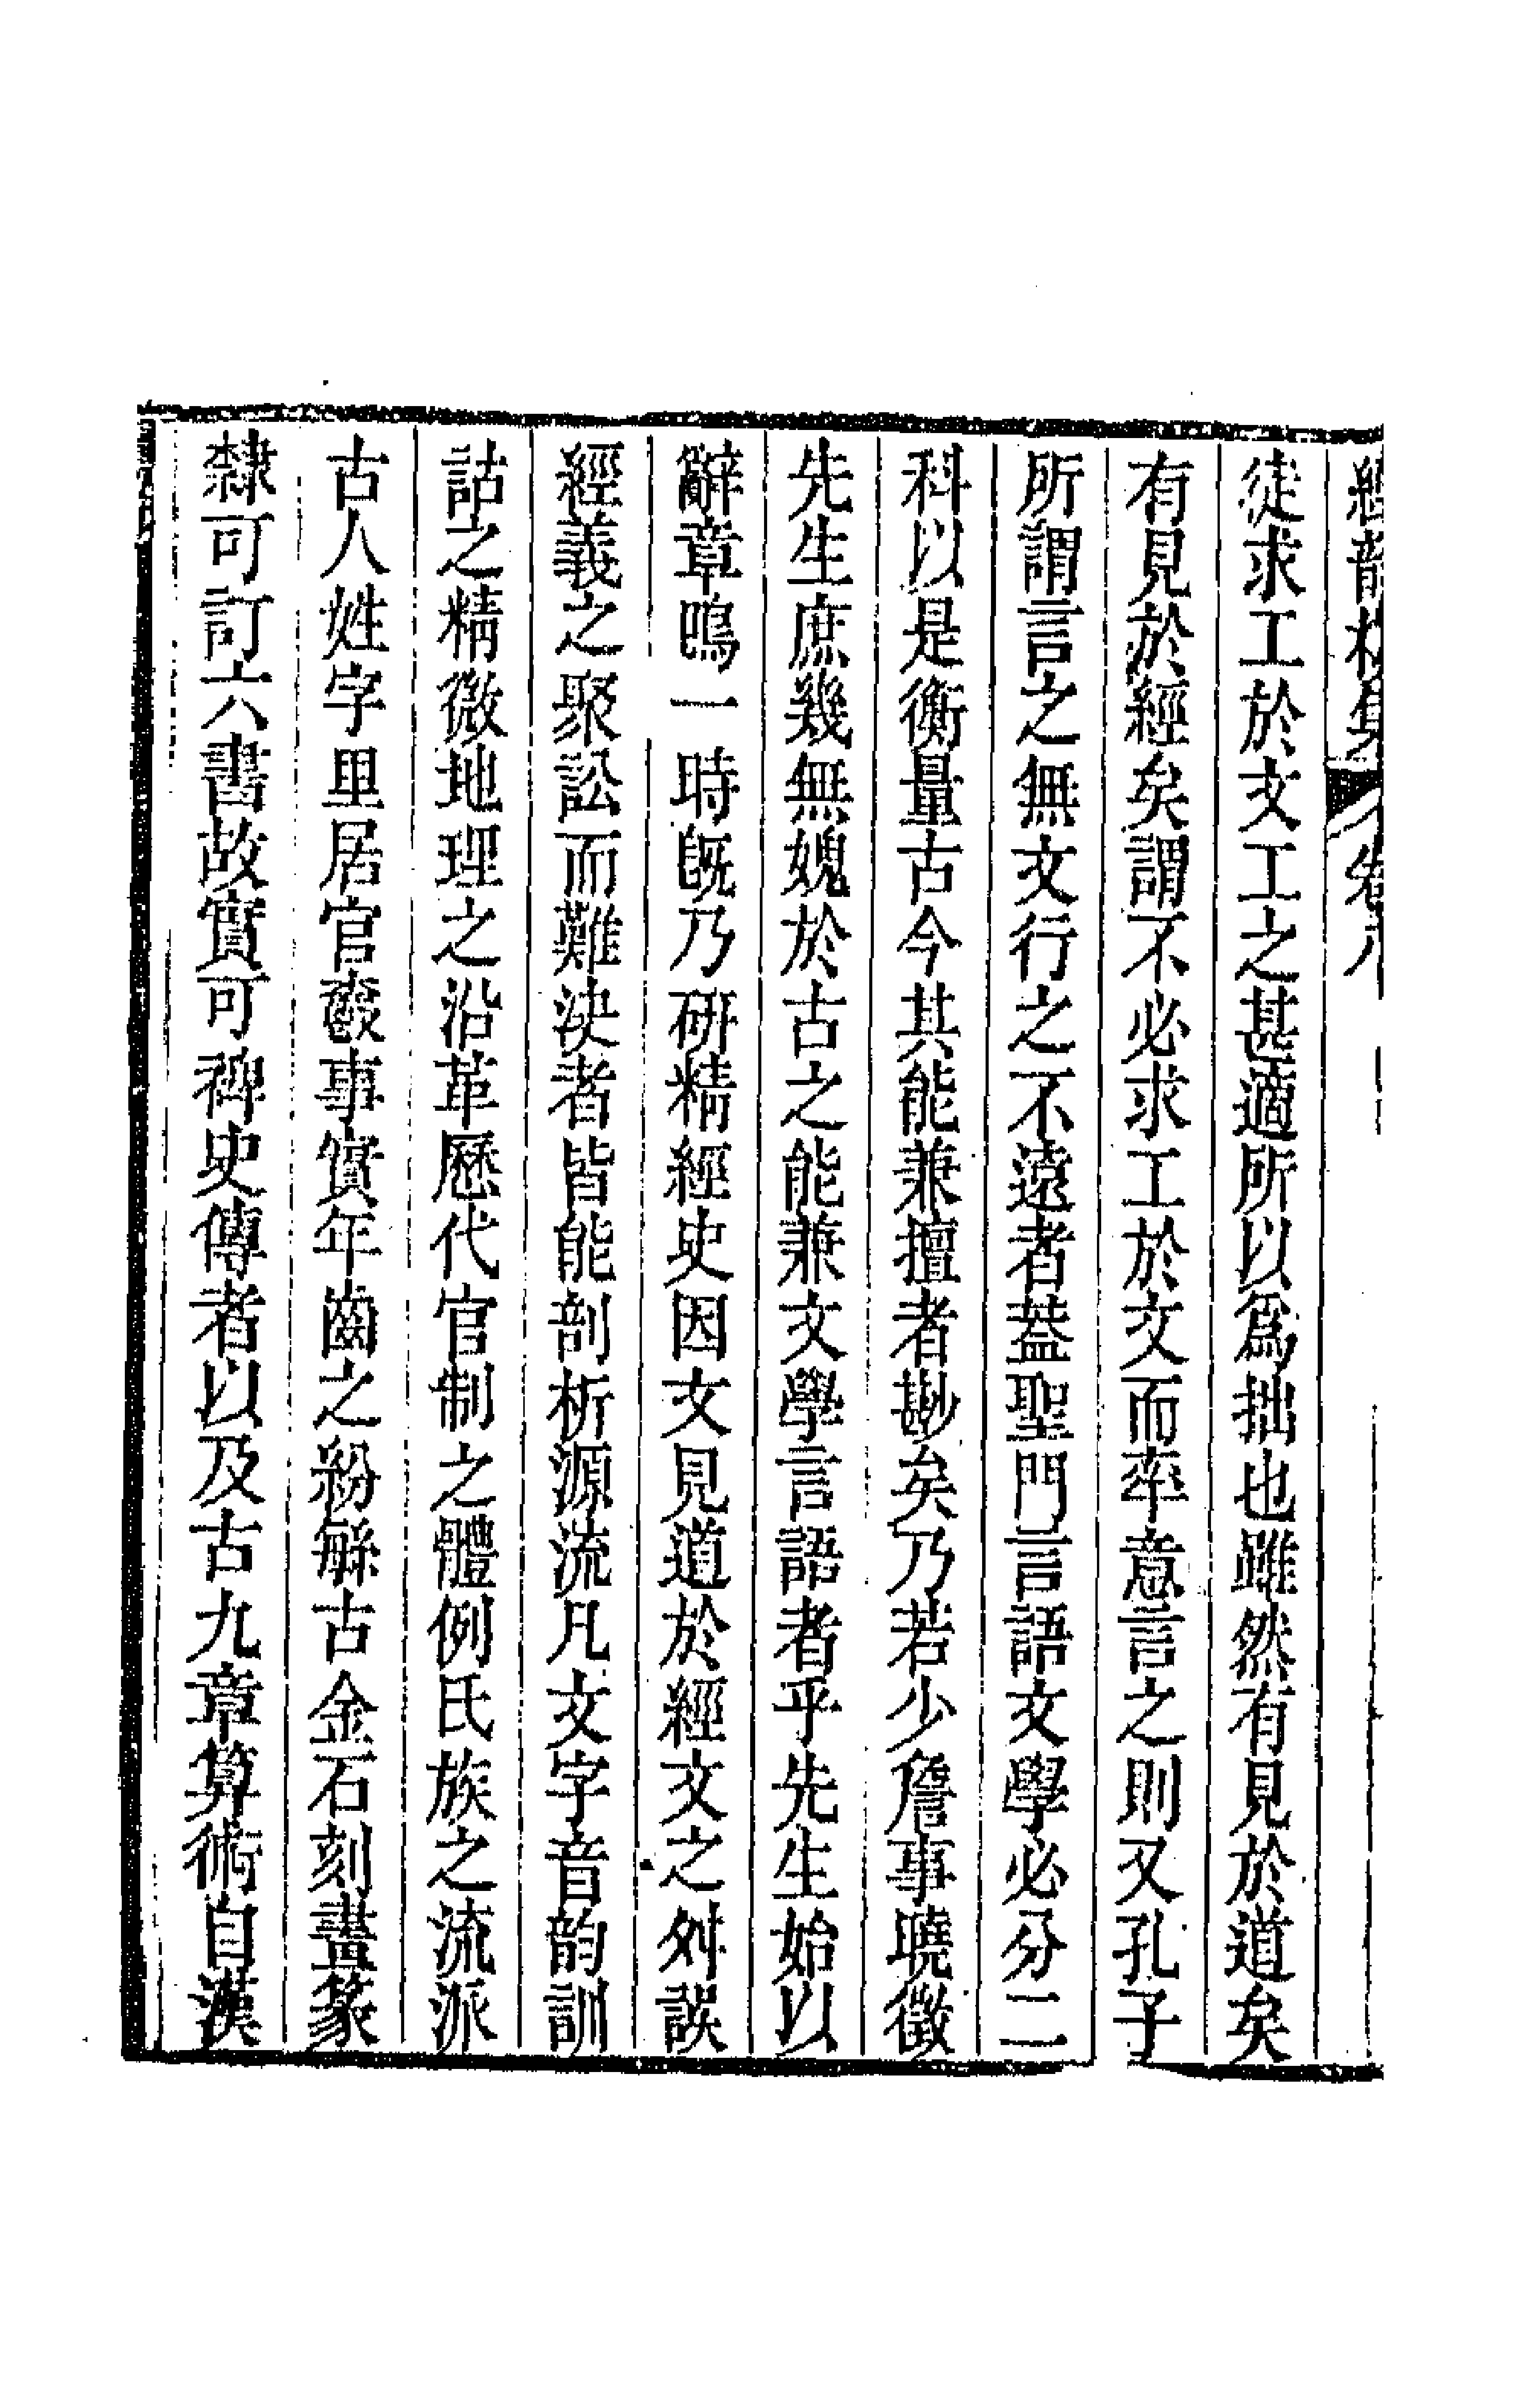 經韵樓集 卷八
徒求工於文工之甚適所以爲拙也雖然有見於道矣
有見於經矣謂不必求工於文而率意言之則又孔子
所謂言之無文行之不遠者葢聖門言語文學必分二
科以是衡量古今其能兼擅者尠矣乃若少詹事曉徵
先生庶幾無媿於古之能兼文學言語者乎先生始以
辭章鳴一時旣乃硏精經史因文見道於經文之舛誤
經義之聚訟而難決者皆能剖析源流凡文字音韵訓
詁之精微地理之沿革歷代官制之體例氏族之流派
古人姓字里居官爵事實年齒之紛繇古金石刻畫篆
隸可訂六書故實可裨史傳者以及古九章算術自漢